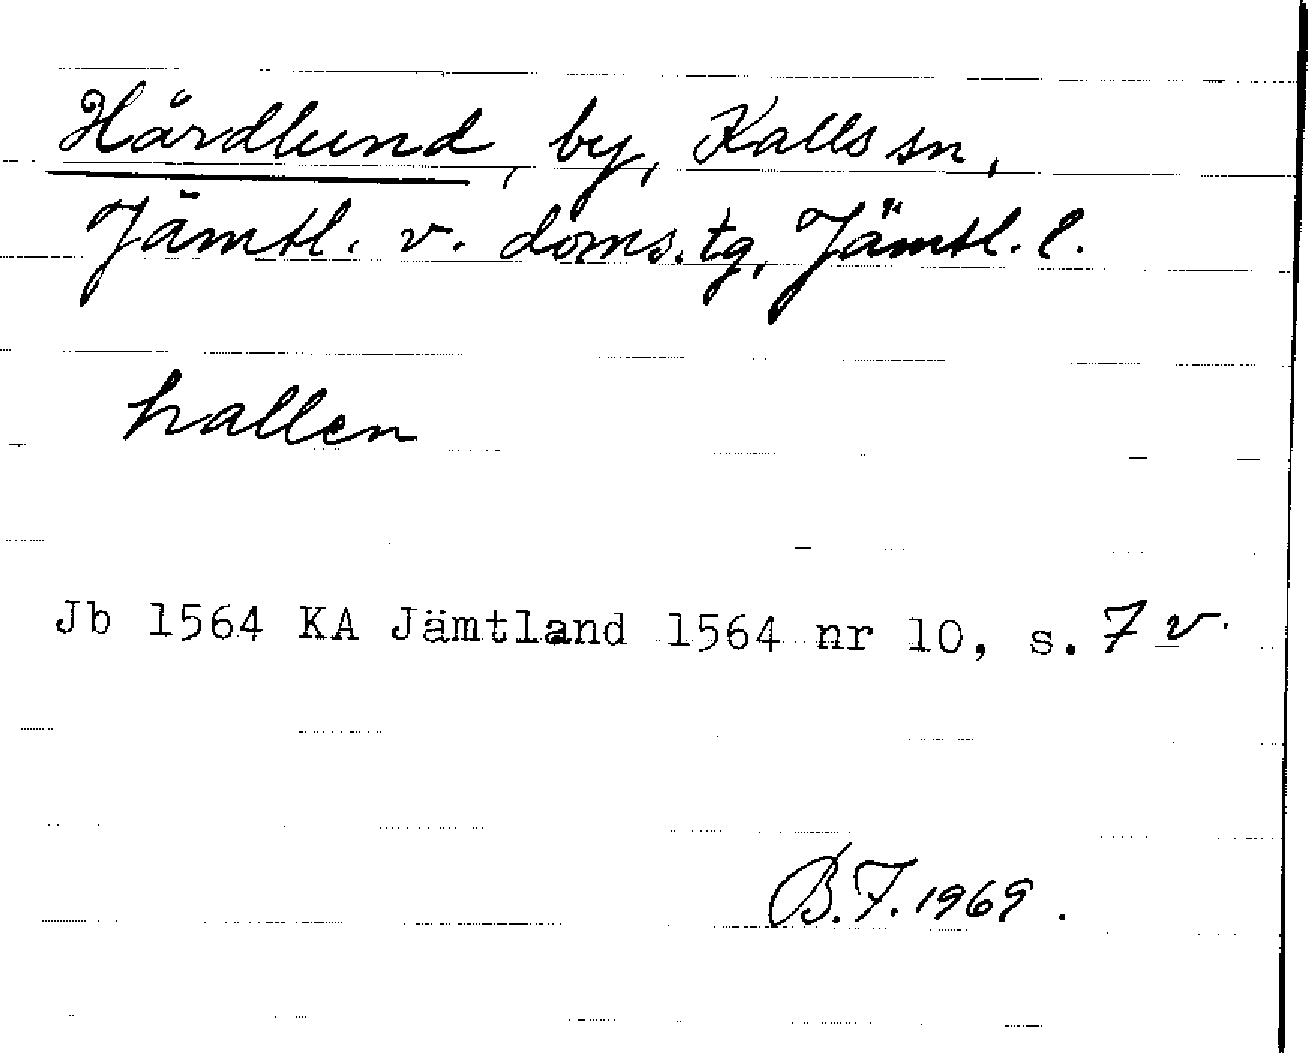 Hårdlund, by, Kalls sn,
Jämtl. v. doms.tg, Jämtl. l.
hallen
Jb 1564 KA Jämtland 1564 nr 10, s. 7 v.
B.F. 1969.